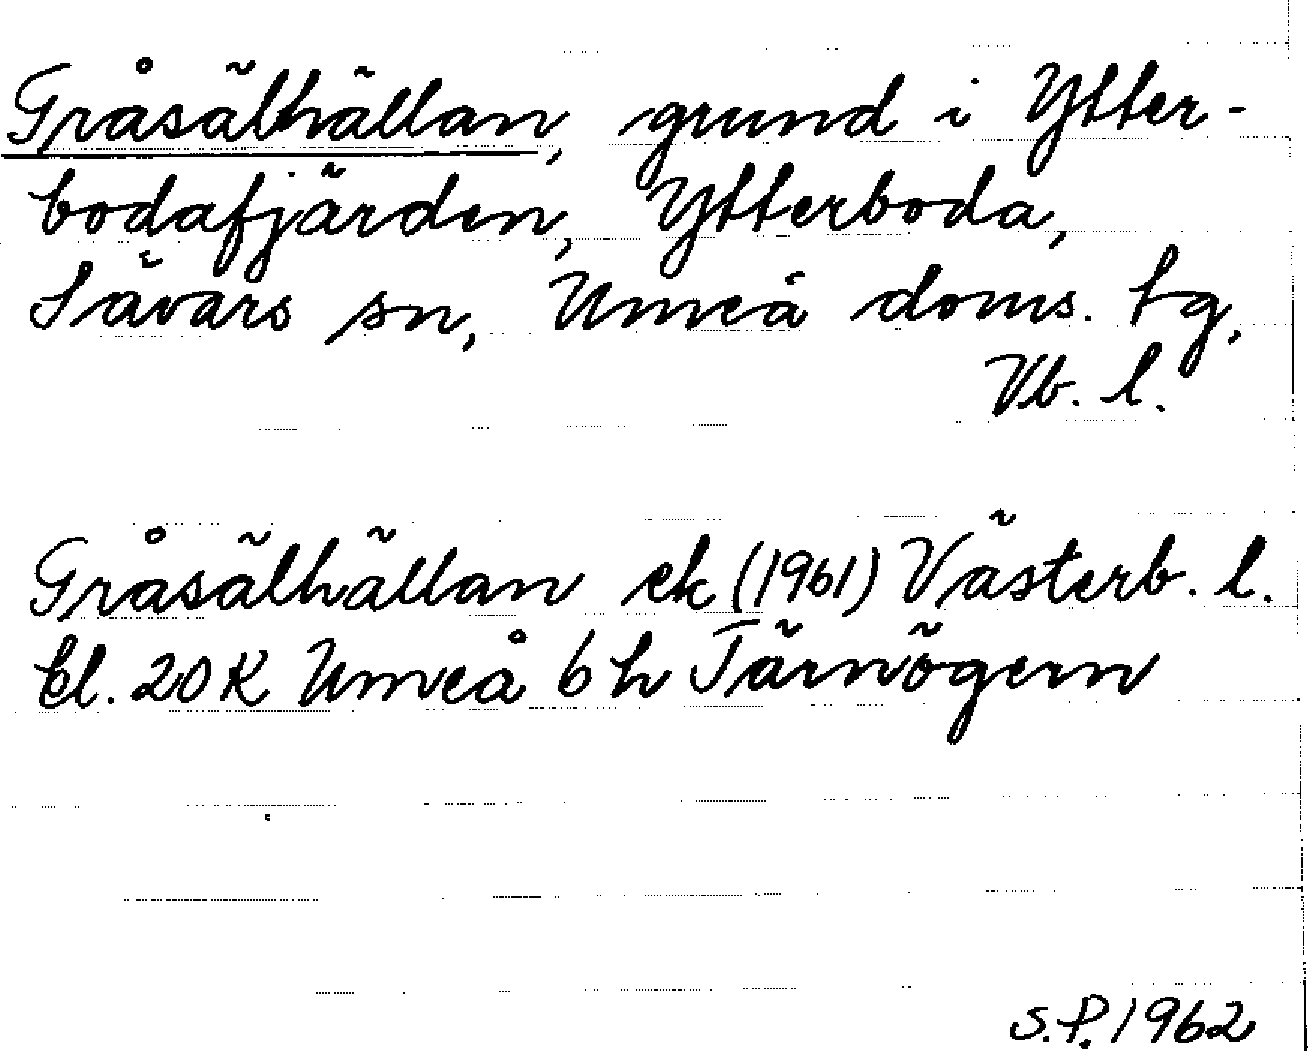 Gråsälhällan, grund i Ytter-
bodafjärden, Ytterboda,
Sävars sn, Umeå doms. tg,
Vb. l.
Gråsälhällan ek (1961) Västerb. l.
bl. 20 K Umeå 6 h Tärnögern
S.P. 1962